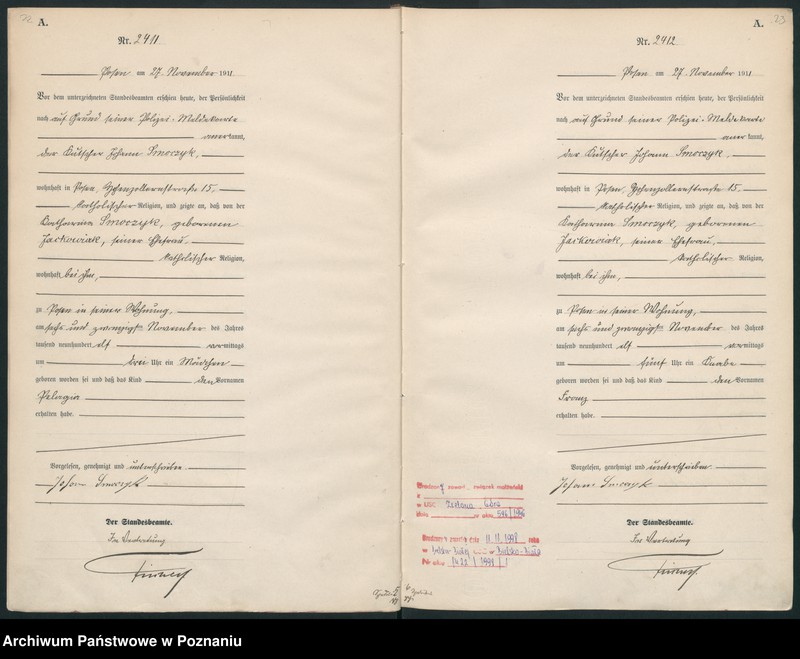 A.
Nr. 2411
Posen am 27. November 1911
Vor dem unterzeichneten Standesbeamten erschien heute, der Persönlichkeit
nach auf Grund seiner Polizei-Meldekarte
anerkannt,
der Kutscher Johann Smoczyk,
wohnhaft in Posen, Hohenzollernstrasse 15,
katholischer Religion, und zeigte an, daß von der
Katharina Smoczyk, geborenen
Jackowiak, seiner Ehefrau,
katholischer Religion,
wohnhaft bei ihm,
zu Posen in seiner Wohnung,
am sechs und zwanzigst November des Jahres
tausend neunhundert elf vormittags
um drei Uhr ein Mädchen
geboren worden sei und daß das Kind den Vornamen
Pelagia
erhalten habe.
Vorgelesen, genehmigt und unterschrieben
Johann Smoczyk
Der Standesbeamte.
In Vertretung
A.
Nr. 2412
Posen am 27. November 1911
Vor dem unterzeichneten Standesbeamten erschien heute, der Persönlichkeit
nach auf Grund seiner Polizei-Meldekarte
anerkannt,
der Kutscher Johann Smoczyk,
wohnhaft in Posen, Hohenzollernstrasse 15,
katholischer Religion, und zeigte an, daß von der
Katharina Smoczyk, geborenen
Jackowiak, seiner Ehefrau,
katholischer Religion,
wohnhaft bei ihm,
zu Posen in seiner Wohnung,
am sechs und zwanzigst November des Jahres
tausend neunhundert elf vormittags
um fünf Uhr ein Knabe
geboren worden sei und daß das Kind den Vornamen
Franz
erhalten habe.
Vorgelesen, genehmigt und unterschrieben
Johann Smoczyk
Der Standesbeamte.
In Vertretung
w USC Zielona Góra
Archiwum Państwowe w Poznaniu